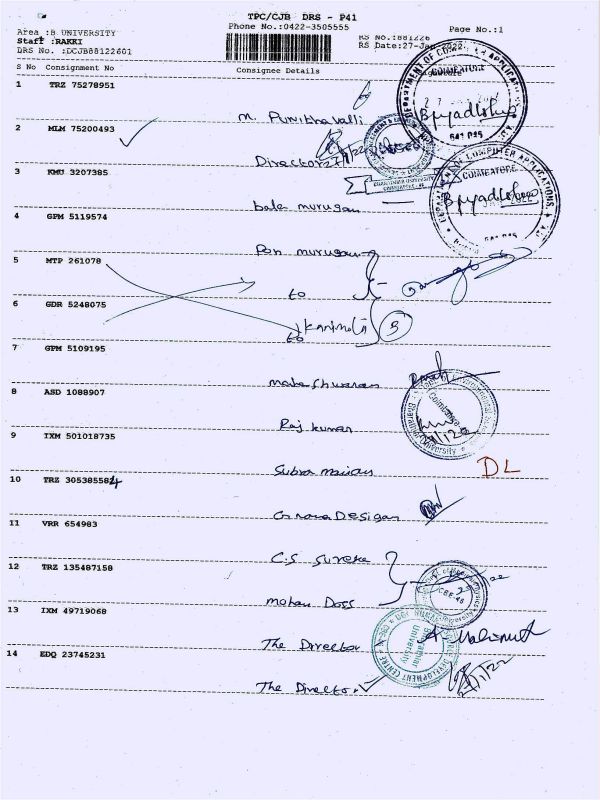 TPC/CJB DRS - P41
Phone No.:0422-3505555
Page No.:1
Area :B UNIVERSITY
Staff :RAKKI
DRS No. :DCJB88122601
RS No.:881226
RS Date:27-Jan-2022
S No Consignment No Consignee Details Signature
1 TRZ 75278951
M. Punithavalli
2 MLM 75200493
Director 27/1/22
3 KMU 3207385
bala murugan
4 GPM 5119574
Pon murugan
5 MTP 261078
to
6 GDR 5248075
Kanimoli B
to
7 GPM 5109195
maheshwaran
8 ASD 1088907
Raj kumar
9 IXM 501018735
Subra manian DL
10 TRZ 305385584
Gnana Desigan
11 VRR 654983
C.S Sureka
12 TRZ 135487158
mohan Doss
13 IXM 49719068
The Director
14 EDQ 23745231
The Director
DEPARTMENT OF COMPUTER APPLICATIONS
COIMBATORE
641 046
DEPARTMENT OF COMPUTER APPLICATIONS
COIMBATORE
Coimbatore
Bharathiar University
CBE-46
Bharathiar University